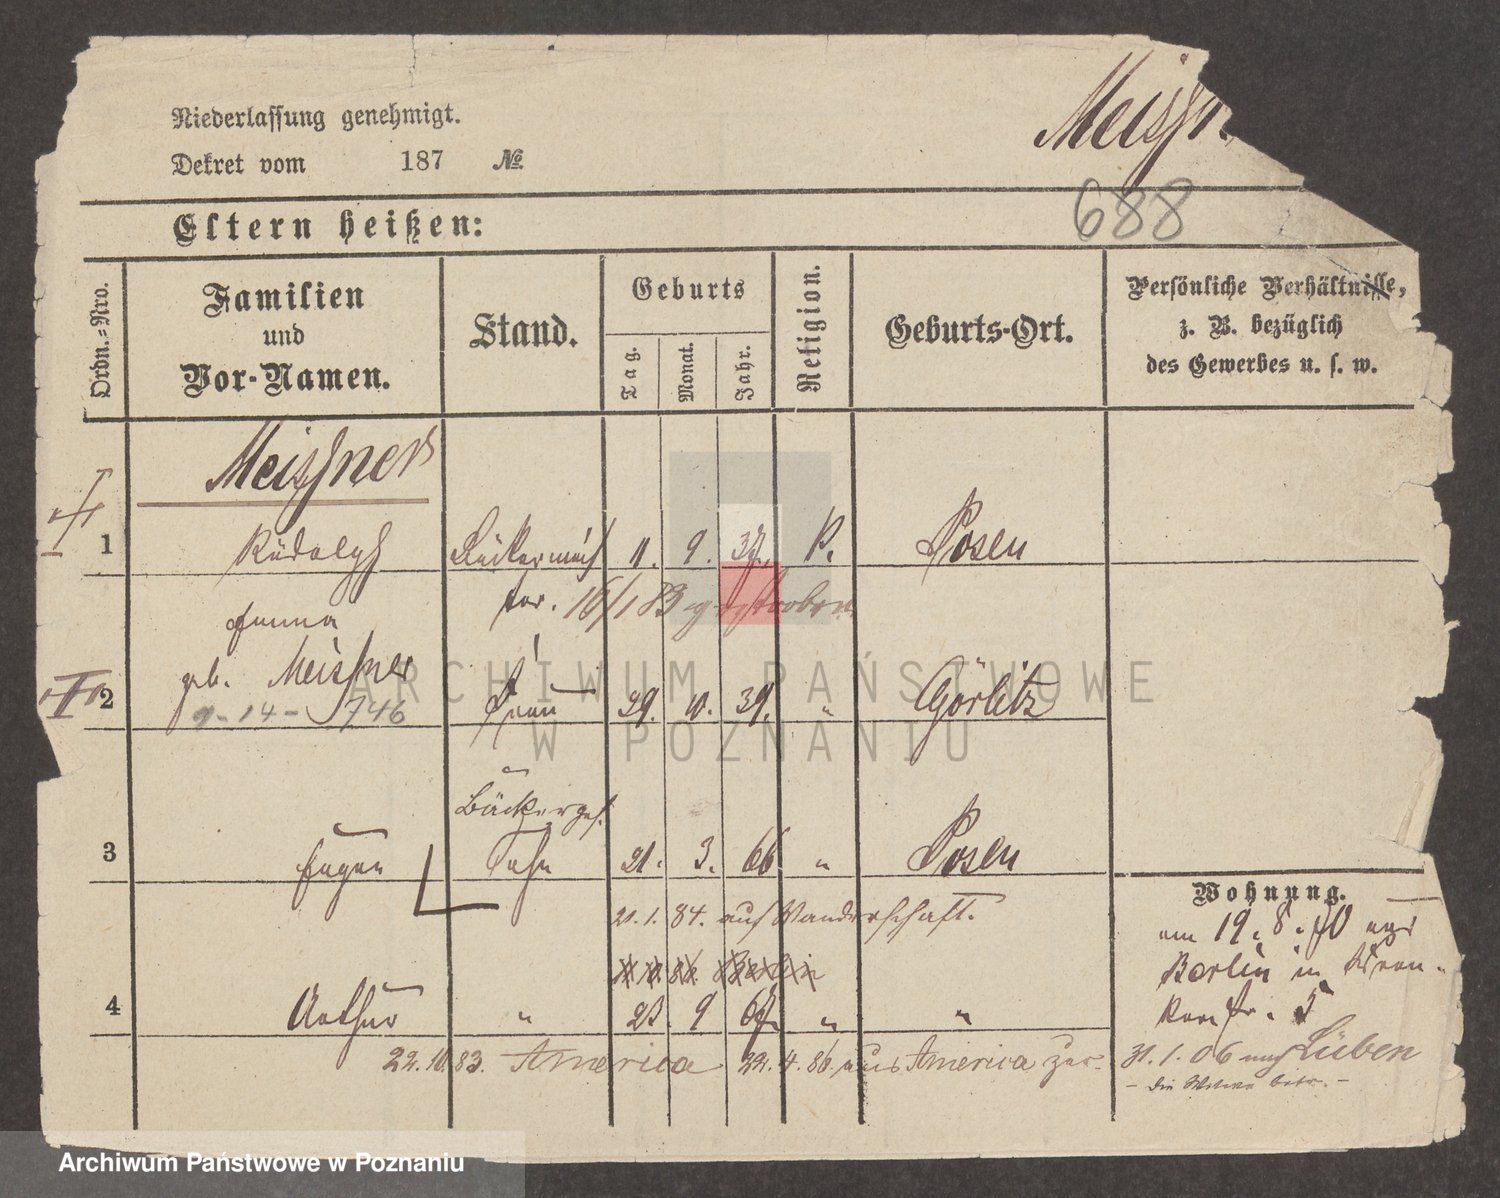 Niederlassung genehmigt.
Dekret vom 187 №
Meissn
688
Eltern heißen:
Ordn.-Nro.
Familien
und
Vor-Namen.
Stand.
Geburts
Tag.
Monat.
Jahr.
Religion.
Geburts-Ort.
Persönliche Verhältnisse,
z. B. bezüglich
des Gewerbes u. s. w.
Meissner
1 Rudolph Bäckermeis 11. 9. 37. P. Posen
ter. 16/1 83 gestorben
Emma
geb. Meissner
2 Frau 29. 10. 39. " Görlitz
9-14-746
Bäckerges.
3 Eugen Sohn 21. 3. 66 " Posen
21.1.84. auf Wanderschaft.
4 Arthur " 23 9 67. " "
22.10.83. America 22.4.86. aus America zur.
Wohnung.
am 19. 8. 70 aus
Berlin in
5
31.1.06 nach Lüben
ARCHIWUM PAŃSTWOWE
W POZNANIU
Archiwum Państwowe w Poznaniu